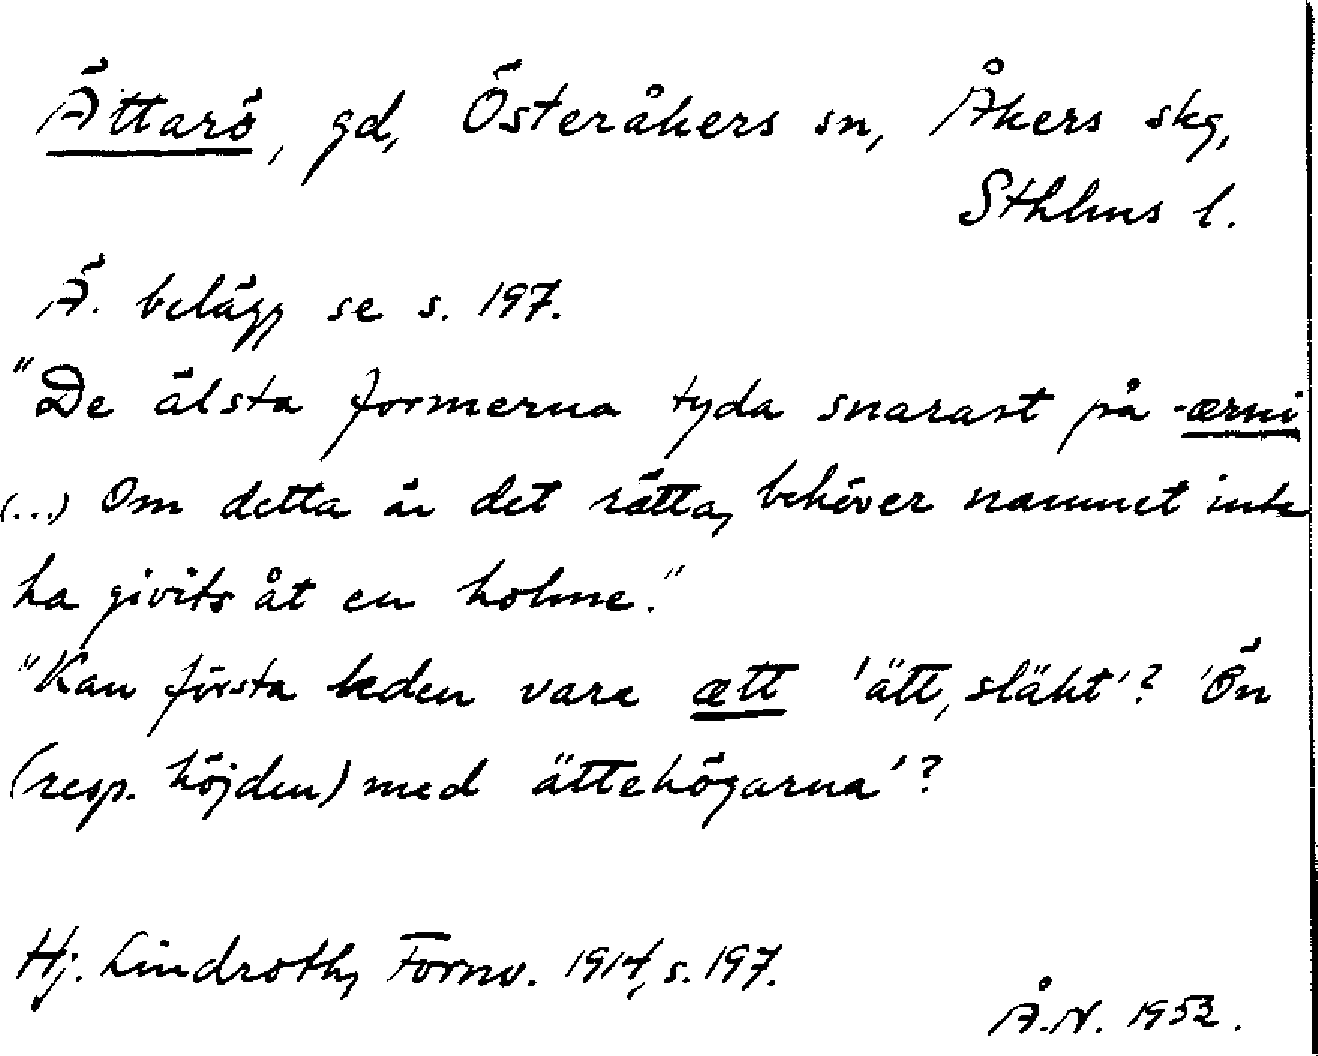 Ättarö, gd, Österåkers sn, Åkers skg,
Sthlms l.
Ä. belägg se s. 197.
"De älsta formerna tyda snarast på -ærni
(...) Om detta är det rätta, behöver namnet inte
ha givits åt en holme."
"Kan första leden vara ætt 'ätt, släkt'? 'Ön
(resp. höjden) med ättehögarna'?
Hj. Lindroth, Fornv. 1914, s. 197.
Å.N. 1952.